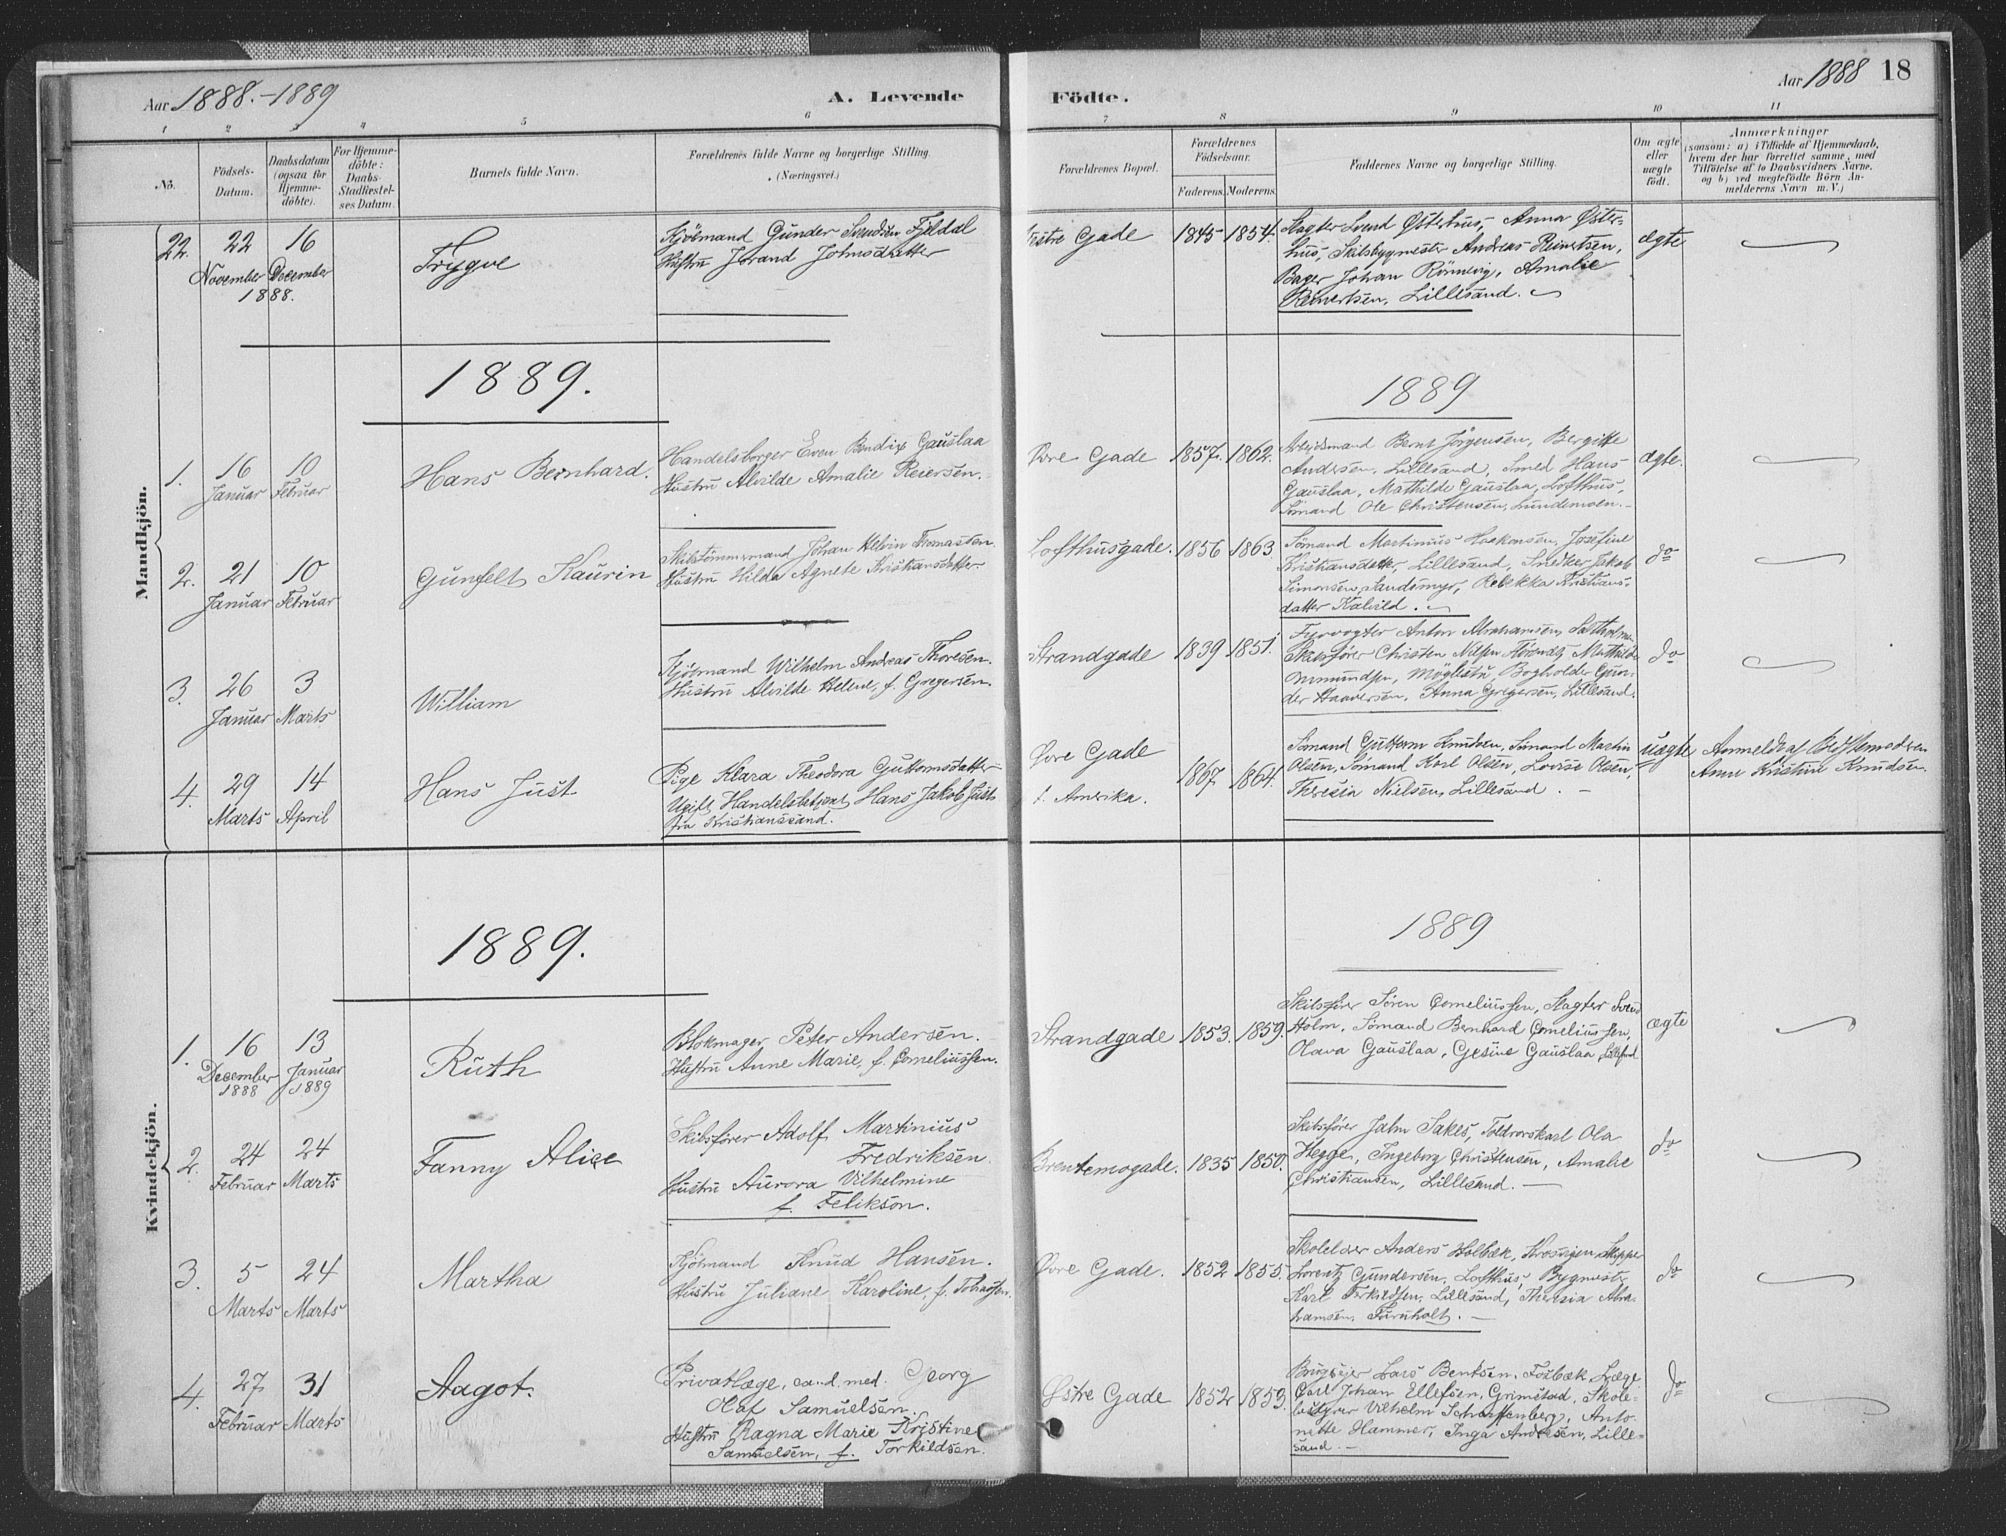 Aar 1888.-1889
A. Levende
Födte.
Aar 1888 18
1 2 3 4 5 6 7 8 9 10 11
No.
Födsels-Datum.
Daabsdatum (ogsaa for Hjemme-döbte).
For Hjemme-döbte: Daabs-Stadfæstel-ses Datum.
Barnets fulde Navn.
Forældrenes fulde Navne og borgerlige Stilling.
(Næringsvei.)
Forældrenes Bopæl.
Forældrenes Födselsaar.
Faderens. Moderens.
Faddernes Navne og borgerlige Stilling.
Om ægte eller uægte födt.
Anmærkninger
(saasom: a) i Tilfælde af Hjemmedaab,
hvem der har forrettet samme, med
Tilföielse af to Daabsvidners Navne.
og b) ved uægtefödte Börn An-
melderens Navn m. V.)
Mandkjön.
22. 22 November 16 December 1888.
Trygve
Kjöbmand Gunder Svendsen Fjeldal
Hustru Jorand Johnsdatter
Vestre Gade 1845 1854.
Slagter Svend Østerhus, Anna Øster-
hus, Skibsbygmester Andreas Reinertsen,
Bager Johan Rönnevig, Amalie
Reinertsen, Lillesand.
ægte
1889.
1889
1. 16 Januar 10 Februar
Hans Bernhard.
Handelsborger Even Bendix Gauslaa
Hustru Alvilde Amalie Reiersen.
Øvre Gade 1857. 1862.
Arbeidsmand Bernt Jörgensen, Bergitte
Andersen, Lillesand, Smed Hans
Gauslaa, Mathilde Gauslaa, Lofthus,
Sömand Ole Christensen, Lundemoen.
ægte.
2. 21 Januar 10 Februar
Gunfelt Kaurin
Skibstömmermand Johan Helvin Thomassen
Hustru Hilda Agnete Kristiansdatter
Lofthusgade. 1856 1863
Sömand Martinus Haakonsen, Josefine
Kristiansdatter, Lillesand, Snedker Jakob
Simonsen, Sandsmyr, Rebekka Kristians-
datter Kalvild.
do
3. 26 Januar 3 Marts
William
Kjöbmand Wilhelm Andreas Thoresen.
Hustru Alvilde Helene, f. Gregersen.
Strandgade 1839 1851.
Fyrvogter Anton Abrahamsen, Saltholmen
Skibsförer Christen Mathilde
Møglestu, Bogholder Gun-
der Haaversen, Anna Gregersen, Lillesand.
do
4. 29 Marts 14 April
Hans Just
Pige Klara Theodora Guttormsdatter
Ugift Handelsbetjent Hans Jakob Just
fra Kristianssand.
Øvre Gade
f. Amerika.
1867 1864.
Sömand Guttorm Knudsen, Sömand Martin
Olsen, Sömand Karl Olsen, Lovise Olsen,
Theresia Nielsen, Lillesand.
uægte
Anmeldt af
Anne Kristine Knudsen.
Kvindekjön.
1889.
1889
1. 16 December 1888 13 Januar 1889
Ruth
Blokmager Peter Andersen.
Hustru Anne Marie, f. Corneliussen.
Strandgade 1853. 1859.
Skibsförer Sören Corneliussen, Slagter Svend
Holm, Sömand Bernhard Corneliussen,
Olava Gauslaa, Gesine Gauslaa, Lillesand
ægte
2. 24 Februar 24 Marts
Fanny Alice
Skibsförer Adolf Martinius
Fredriksen.
Hustru Aurora Vilhelmine
f. Felikson.
Brentemogade. 1835 1850.
Skibsförer Jahn Sakes, Toldrorskarl Ola
Hegge, Ingeborg Christensen, Amalie
Christiansen, Lillesand.
do
3. 5 Marts 24 Marts
Martha
Kjöbmand Knud Hansen.
Hustru Juliane Karoline, f. Tobiassen.
Øvre Gade. 1852 1855.
Skolelærer Anders Holbæk, Skipper
Lorentz Gundersen, Lofthus, Bygmester
Karl Terkildsen, Lillesand, Theresia Abra-
hamsen, Furuholt.
do
4. 27 Februar 31 Marts
Aagot.
Privatlæge, cand. med. Georg
Olaf Samuelsen.
Hustru Ragna Marie Kristine
Samuelsen, f. Torkildsen.
Østre Gade 1852 1853.
Brugseier Lars Bentsen, Fosbæk, Læge
Carl Johan Ellefsen, Grimstad, Skole-
bestyrer Vilhelm Scharffenberg, Anto-
nette Hammer, Inga Andresen, Lille-
sand.
do